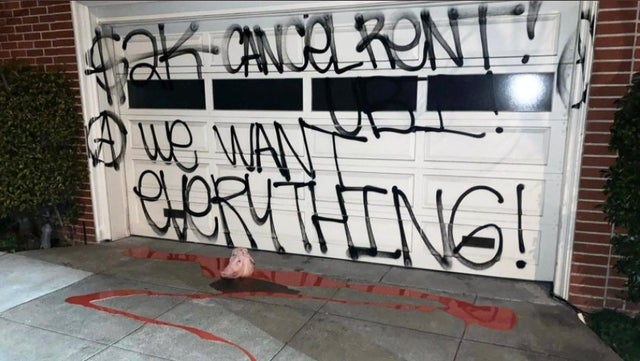 $2K CANCEL RENT!
UBI!
Ⓐ WE WANT
EVERYTHING!